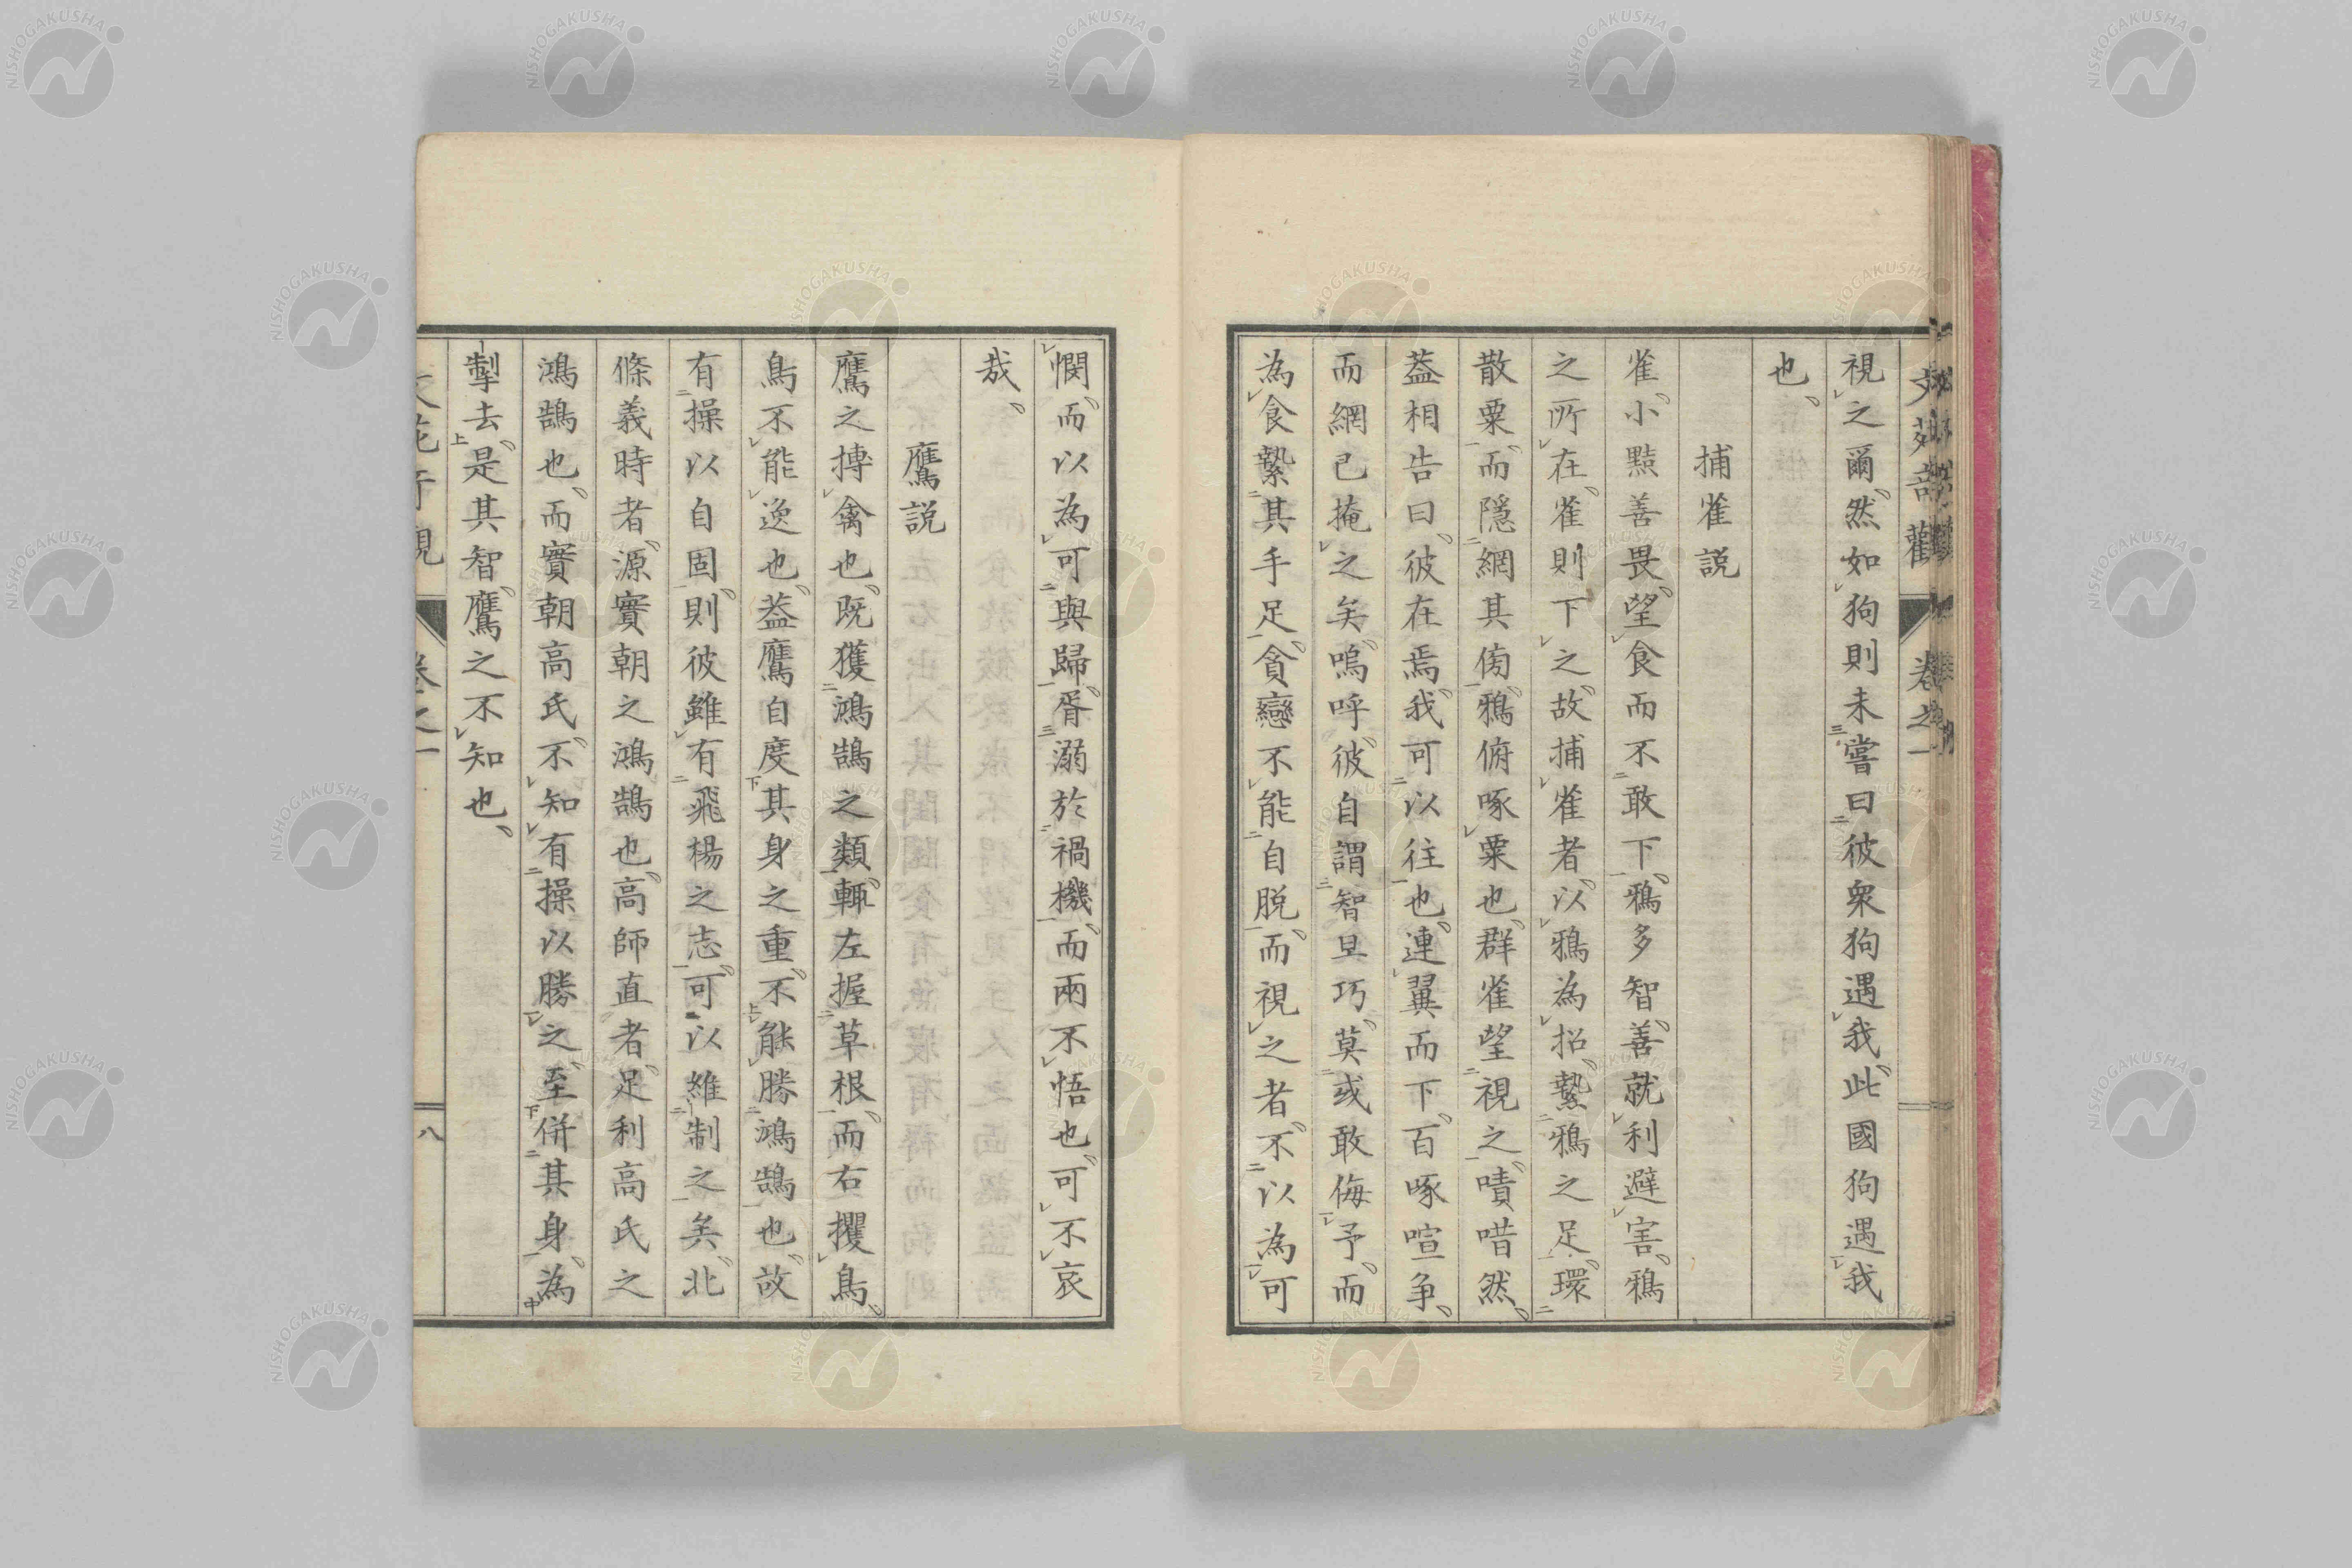 視之爾、然如狗則未嘗曰彼衆狗遇我、此國狗遇我
也、
捕雀説
雀、小黠善畏、望食而不敢下、鴉多智、善就利避害、鴉
之所在、雀則下之、故捕雀者、以鴉為招、縶鴉之足、環
散粟、而隱網其傍、鴉俯啄粟也、群雀望視之、嘖唶然、
葢相告曰、彼在焉、我可以往也、連翼而下、百啄喧争、
而網已掩之矣、嗚呼、彼自謂智且巧、莫或敢侮予、而
為食縶其手足、貪戀不能自脱、而視之者、不以為可
憫、而以為可與歸、胥溺於禍機、而兩不悟也、可不哀
哉、
鷹説
鷹之摶禽也、既獲鴻鵠之類、輙左握草根、而右攫鳥、
鳥不能逸也、葢鷹自度其身之重、不能勝鴻鵠也、故
有操以自固、則彼雖有飛楊之志、可以維制之矣、北
條義時者、源實朝之鴻鵠也、高師直者、足利高氏之
鴻鵠也、而實朝高氏、不知有操以勝之、至併其身、為
掣去、是其智、鷹之不知也、
卷之一
八
NISHOGAKUSHA